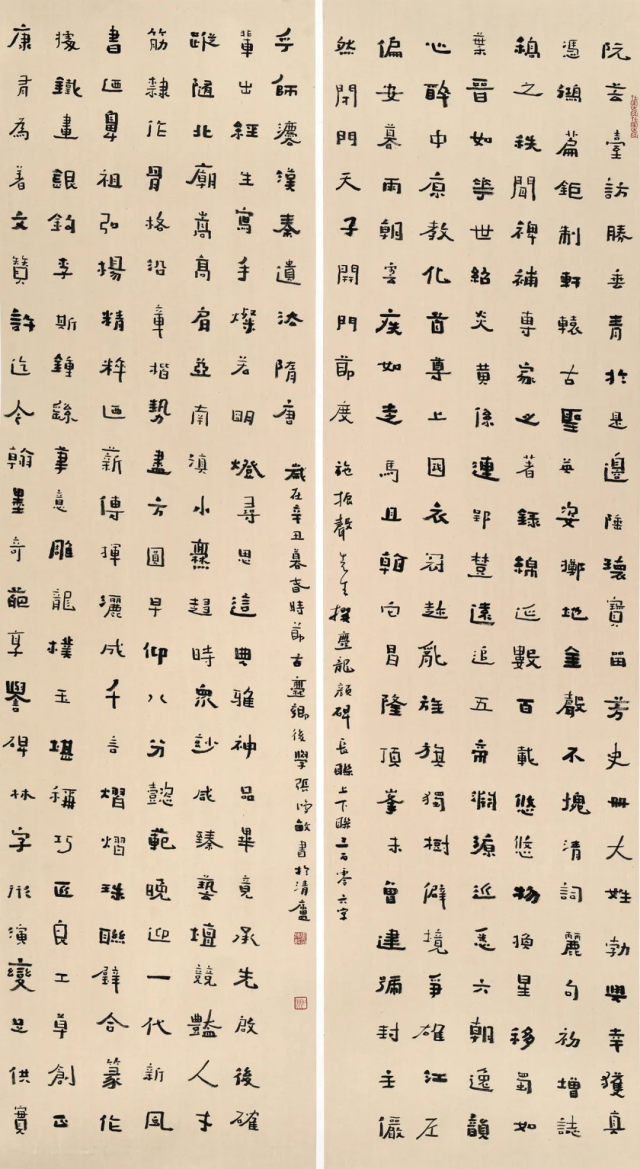 阮芸臺訪勝垂青於是邊陲瓌寶留芳史冊大姓勃興幸獲真
憑鴻篇鉅制軒轅古聖英姿擲地金聲不愧清詞麗句初增誌
稿之秩聞裨補專家之著錄綿延數百載悠悠物換星移蜀如
葉晉如華世紹炎黃係連郢楚遠追五帝淵源近悉六朝逸韻
心醉中原教化首尊上國衣冠趁亂旌旗獨樹僻境爭雄江左
偏安暮雨朝雲疾如走馬且翰向昌隆頂峯未曾建彌封主儼
然閉門天子開門節度
施振聲先生撰爨龍顏碑長聯上下聯三百零六字
康有為著文贊許迄今翰墨奇葩享譽碑林字形演變足供實
據鐵畫銀鉤李斯鍾繇筆意雕龍樸玉堪稱巧匠良工草創正
書迺鼻祖弘揚精粹迺薪傳揮灑成千言熠熠珠聯璧合篆作
筋隸作骨格沿章楷勢盡方圓早仰八分懿範晚迎一代新風
蹤隨北廟嵩高肩亞南滇小爨超時衆妙咸臻藝壇競豔人才
輩出經生寫手燦若明燈尋思這典雅神品畢竟承先啟後確
乎師灋漢秦遺法隋唐
歲在辛丑暮春時節古爨鄉後學張敏書於清廬